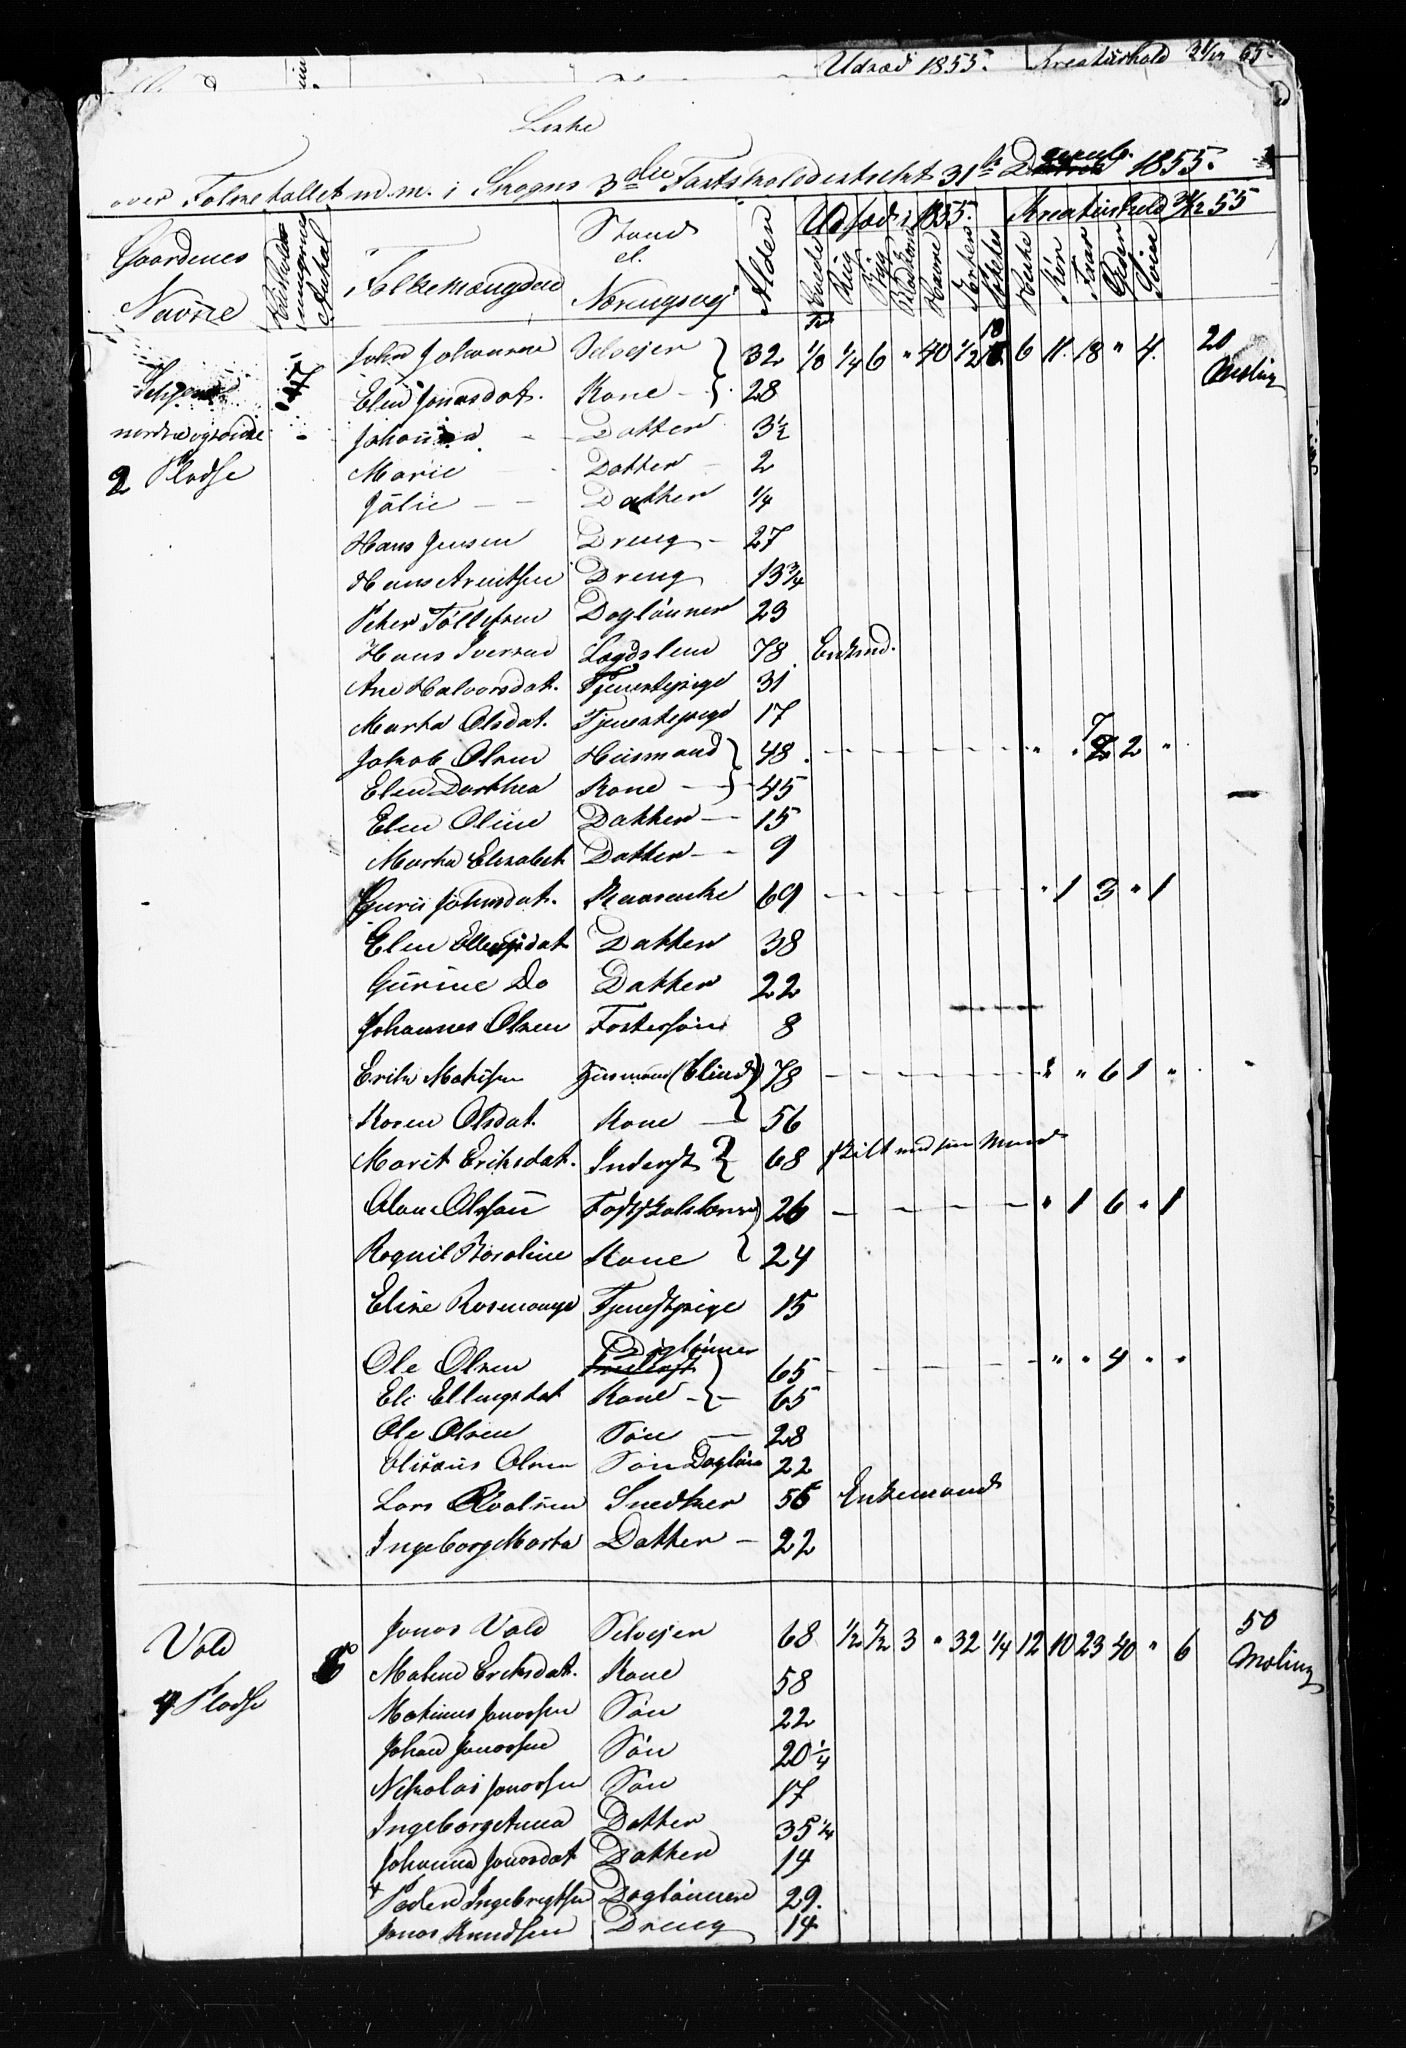 Udsæd 1855. Kreaturhold 31/12 55
Liste
over Folketallet m.m. i Sognes 3die Fastskoledistrikt 31te Decemb. 1855.
Udsæd i 1855. Kreaturhold 31/12 55
Gaardenes Navne Antal Folkemængden Stand el. Næringsvej Alder Hvede Rug Byg Blandkorn Havre Erter Poteter Heste Kør Faar Geder Svin
John Johannesen Selvejer 32 1/8 1/4 6 " 40 1/2 18 6 11 18 " 4 20 Mæling
Elen Jonasdat. Kone 28
nordre og søndre Johanna Datter 3 1/2
2 Pladse Marie Datter 2
Julie Datter 1/4
Hans Jensen Dreng 27
Hans Arentsen Dreng 13 3/4
Peter Tollefsen Daglønner 23
Hans Iversen Lægdslem 78 Enkmd.
Ane Halvorsdat. Tjenestepige 31
Marta Olsdat. Tjenestepige 17
Jakob Olsen Husmand 48 " " 7 2 "
Elen Dorthea Kone 45
Elen Oline Datter 15
Marta Elisabet Datter 9
Guru Johnsdat. Kaarenke 69 " 1 3 " 1
Elen Ellingsdat Datter 38
Gurine Do Datter 22
Johannes Olsen Fostersøn 8
Erik Matisen Husmand (blind) 78 " " 6 1 "
Karen Olsdat. Kone 56
Marit Eriksdat. Inderst 68 skilt ved sin Mand
Olaus Olsson Fastskolelærer 26 " 1 6 " 1
Ragnil Karoline Kone 24
Elise Rasmusdat Tjenestpige 15
Ole Olsen Dagløner 65 " " 4 " "
Eli Ellingsdat Kone 65
Ole Olsen Søn 28
Elisæus Olsen Søn Dagløn 22
Lars Roalsen Snedker 56 Enkemand
Ingeborg Marta Datter 22
Vold 8 Jonas Vold Selvejer 68 1/2 1/2 3 " 32 1/4 12 10 23 40 " 6 50 Mæling
4 Pladse Malene Eriksdat. Kone 58
Matinus Jonassen Søn 22
Johan Jonassen Søn 20 1/4
Nikolai Jonassen Søn 17
Ingeborg Anna Datter 35 1/4
Johanna Jonasdat Datter 14
Peder Ingebrigtsen Daglønner 29.
Jonas Knudsen Dreng 14